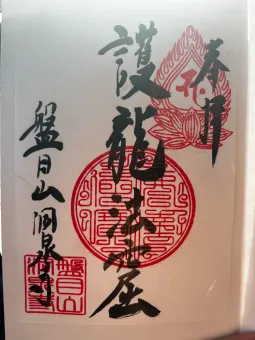 奉拝
護龍法窟
盤日山洞泉寺